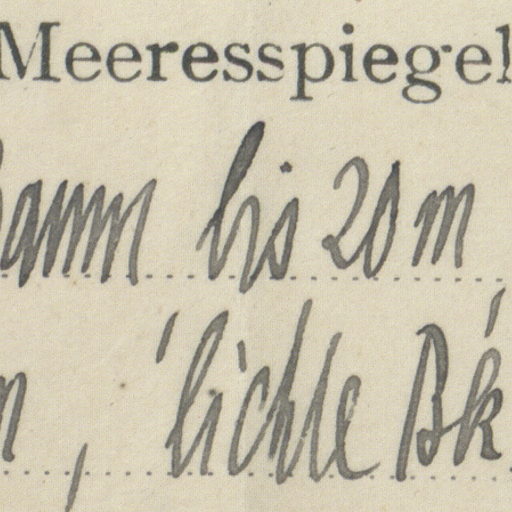 Meeresspiegel
bis 20 m
, lichte Bk.